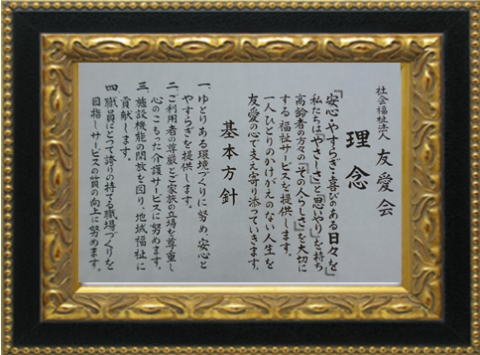 社会福祉法人 友愛会
理念
『安心・やすらぎ・喜びのある日々を』
私たちは『やさしさ』と『思いやり』を持ち
高齢者の方々の『その人らしさ』を大切に
する福祉サービスを提供します。
一人ひとりのかけがえのない人生を
友愛の心で支え寄り添っていきます。
基本方針
一、ゆとりある環境づくりに努め、安心と
やすらぎを提供します。
二、ご利用者の尊厳とご家族の立場を尊重し
心のこもった介護サービスに努めます。
三、施設機能の開放を図り、地域福祉に
貢献します。
四、職員にとって誇りの持てる職場づくりを
目指しサービスの質の向上に努めます。